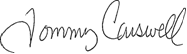 Tommy Carswell